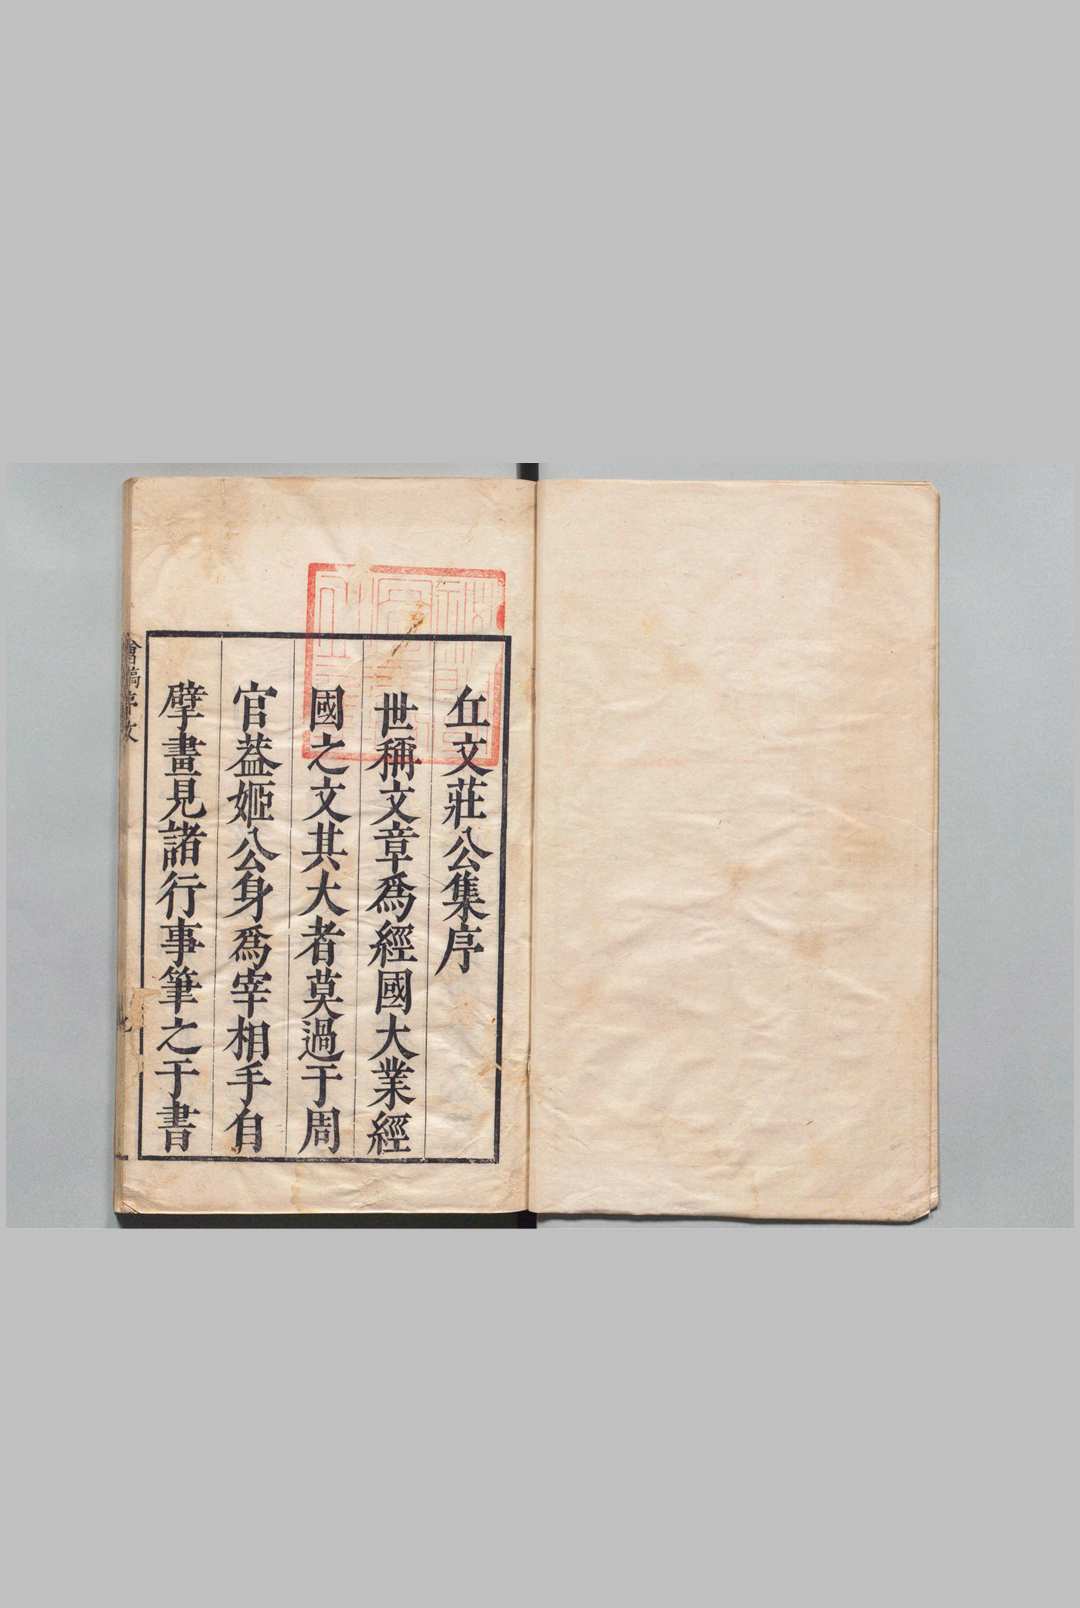 丘文莊公集序
世稱文章爲經國大業經
國之文其大者莫過于周
官葢姬公身爲宰相手自
擘畫見諸行事筆之于書
會稿序文